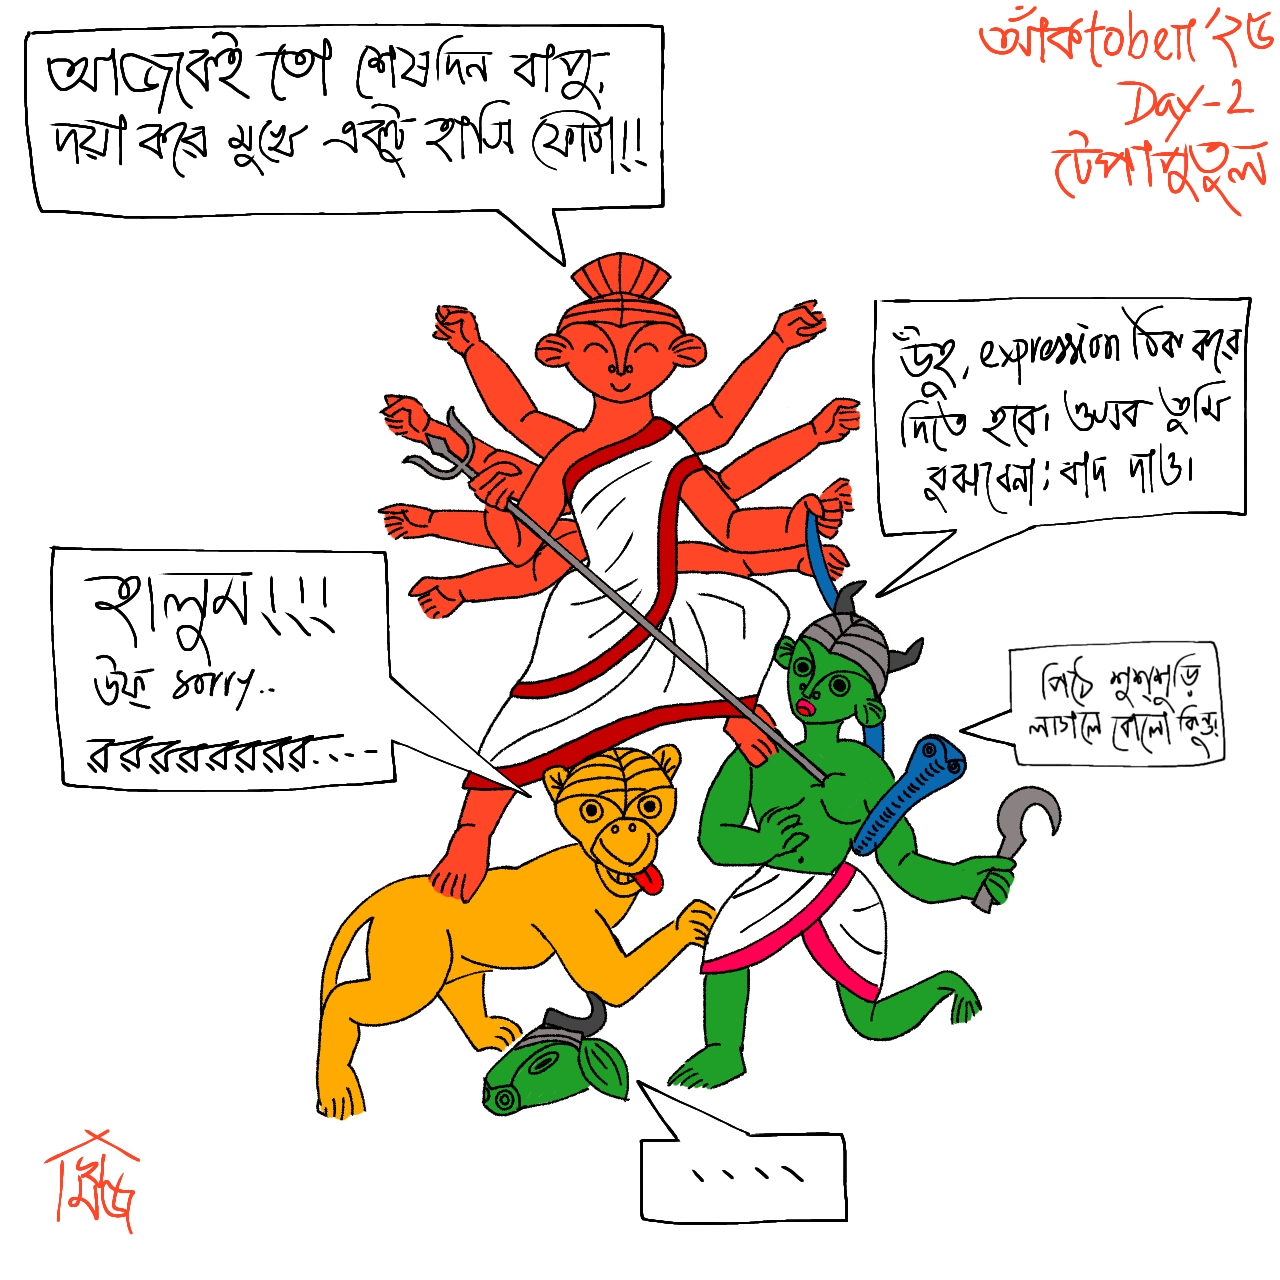 আজকেই তো শেষদিন বাপু,
দয়া করে মুখে একটু হাসি ফোটা!!
আঁকtober '২৫
Day-2
টেপাপুতুল
উঁহু, expression ঠিক করে
দিতে হবে। ওসব তুমি
বুঝবেনা; বাদ দাও।
হালুম!!!
উফ্ sorry..
ররররররর...
পিঠে শুশ্শুড়ি
লাগলে বোলো কিন্তু।
....